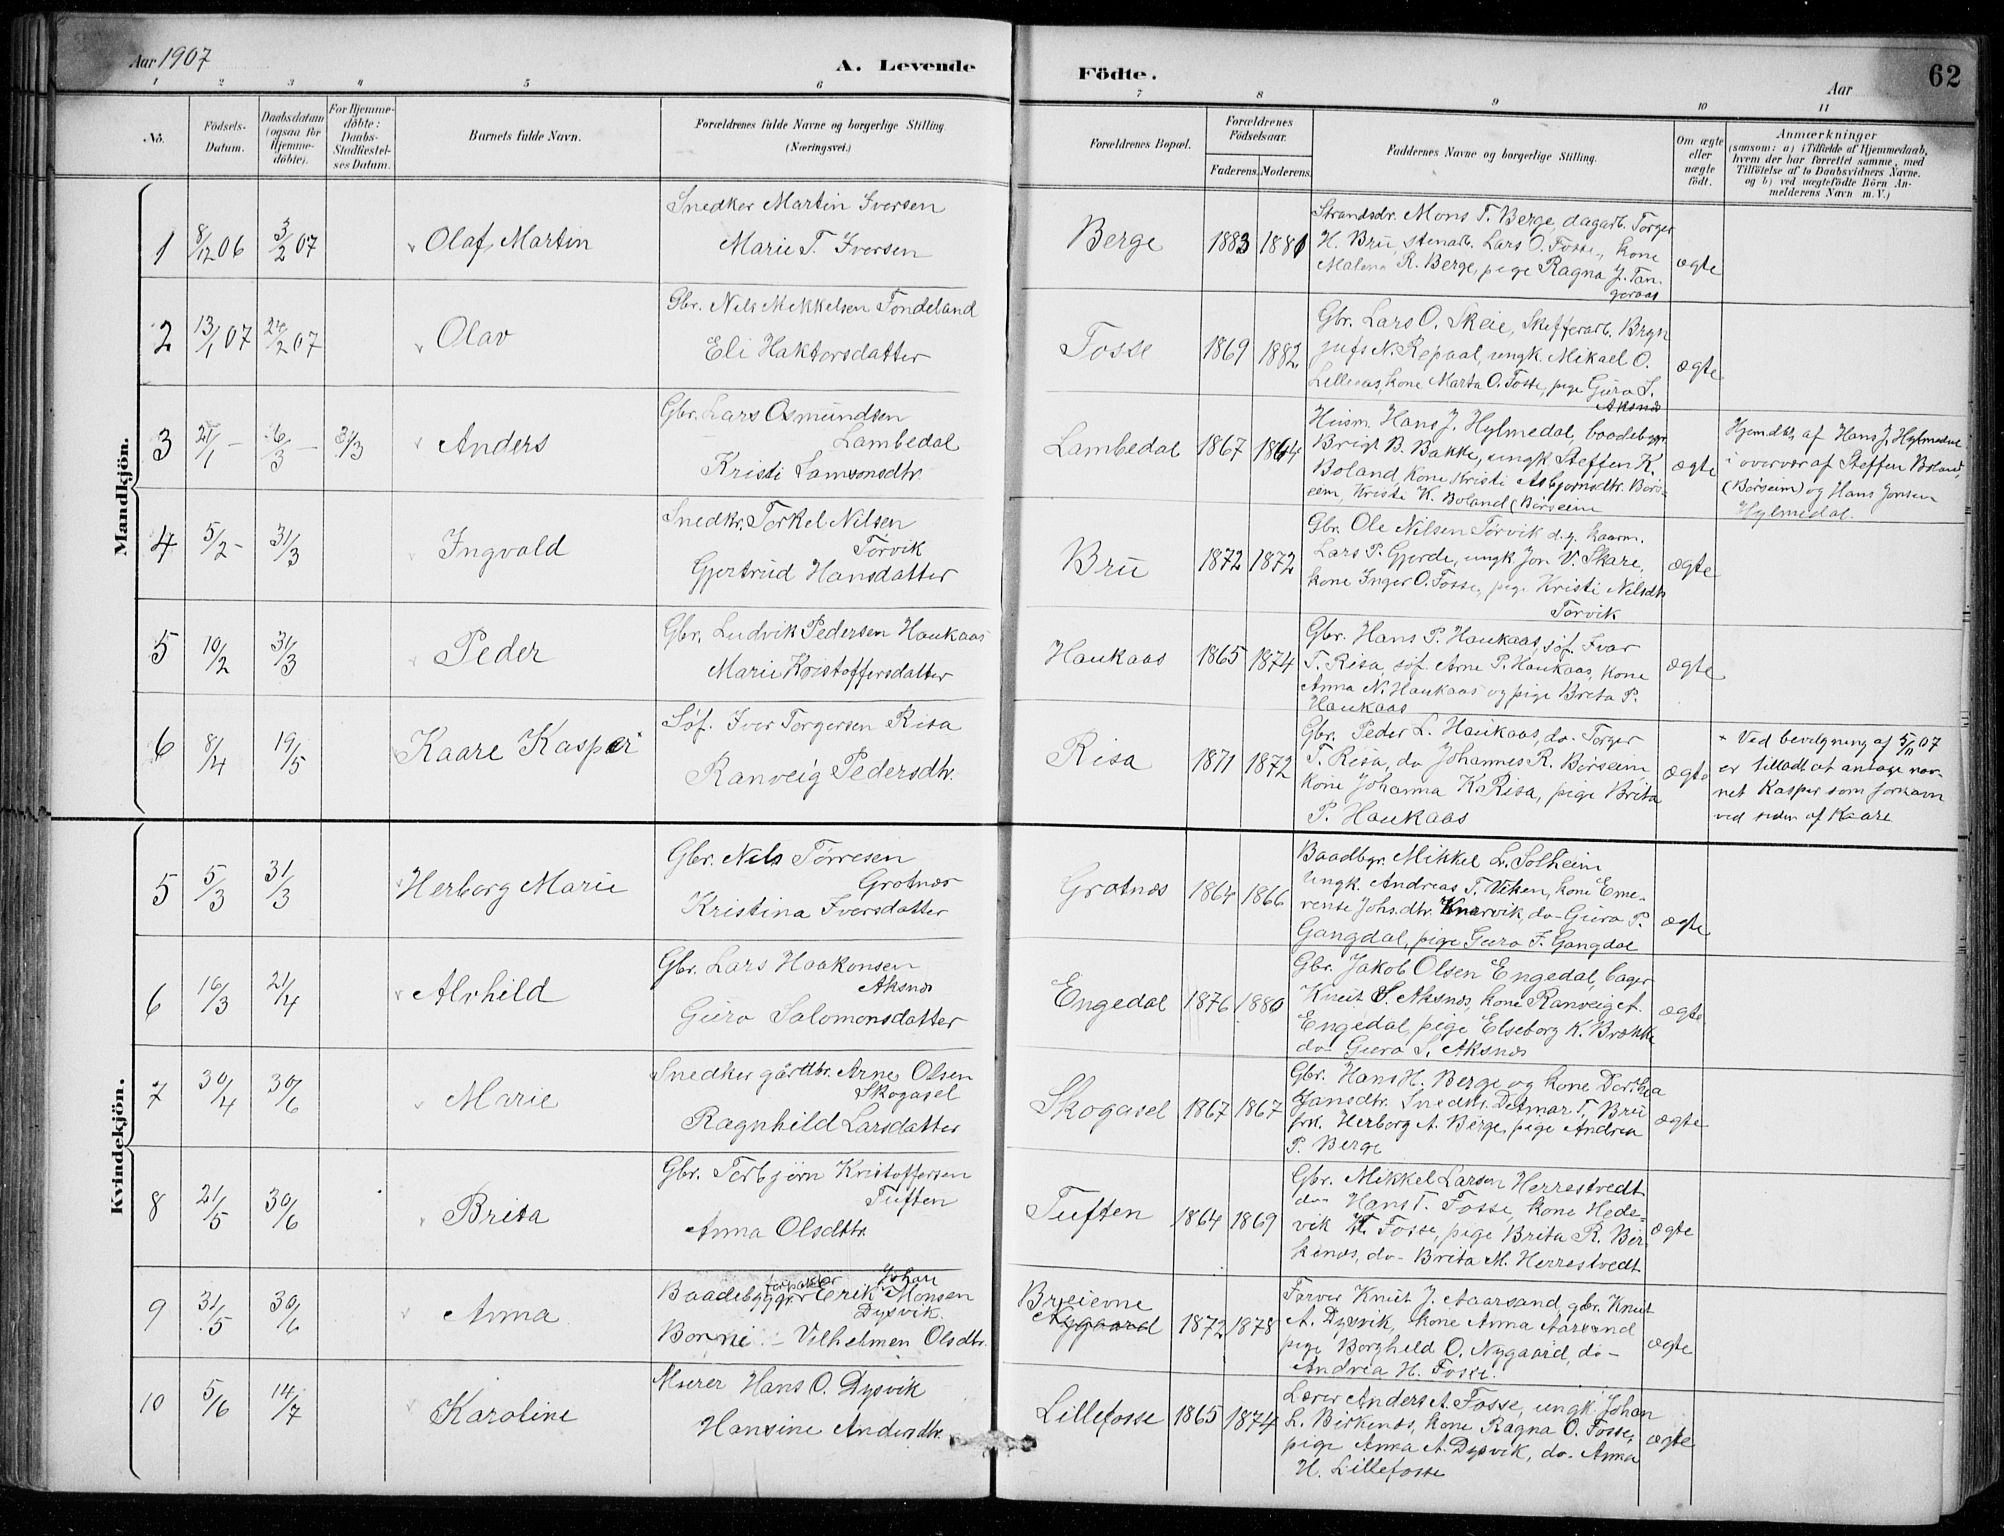 Aar 1907
A. Levende Födte.
Aar
62
1 2 3 4 5 6 7 8 9 10 11
No.
Födsels-
Datum.
Daabsdatum
(ogsaa for
Hjemme-
döbte).
For Hjemme-
döbte:
Daabs-
Stadfæstel-
ses Datum.
Barnets fulde Navn.
Forældrenes fulde Navne og borgerlige Stilling.
(Næringsvei.)
Forældrenes Bopæl.
Forældrenes
Födselsaar.
Faderens. Moderens.
Faddernes Navne og borgerlige Stilling.
Om ægte
eller
uægte
født.
Anmærkninger
(saasom: a) i Tilfælde af Hjemmedaab,
hvem der har forrettet samme, med
Tilføielse af to Daabsvidners Navne.
og b) ved uægtefödte Börn An-
melderens Navn m. V.)
Mandkjön.
1 8/12 06 3/2 07 Olaf Martin
Snedker Martin Iversen
Marie T. Iversen
Berge 1883 1881
Strandsdr. Mons T. Berge, dagarb. Torger
H. Bru, stenarb. Lars O. Fosse, kone
Malena R. Berge, pige Ragna J. Tan-
geraas
ægte
2 13/1 07 24/2 07 Olav
Gbr. Nels Mekkelsen Tondeland
Eli Haktorsdatter
Fosse 1869 1882
Gbr. Lars O. Skeie, Skifferarb. Bryn
julf N. Repaal, ungk. Mikael O.
Lillenes, kone Marta O. Fosse, pige Guro S.
Aksnes
ægte
3 21/1 - 6/3 - 31/3 Anders
Gbr. Lars Osmundsen
Lambedal
Kristi Samsonsdtr.
Lambedal 1867 1864
Husm. Hans J. Hylmedal, baadebggr.
Brigt B. Bakke, ungk. Steffen K.
Boland, kone Kristi Asbjørnsdtr. Børs-
eim, Kristi K. Boland (Børseim
ægte
Hjemdbt. af Hans J. Hylmedal
i overvær af Steffen Boland,
(Børseim) og Hans Jonsen
Hylmedal.
4 5/2 - 31/3 Ingvald
Snedkr. Torkel Nilsen
Torvik
Gjertrud Hansdatter
Bru 1872 1872
Gbr. Ole Nilsen Torvik d.y. kaarm.
Lars P. Gjerde, ungk. Jon V. Skare,
kone Inger O. Fosse, pige Kristi Nilsdtr
Torvik
ægte
5 10/2 31/3 Peder
Gbr. Ludvik Pedersen Haukaas
Marie Kristoffersdatter
Haukaas 1865 1874
Gbr. Hans P. Haukaas, søf. Ivar
T. Risa, søf. Arne P. Haukaas, kone
Anna N. Haukaas og pige Brita P.
Haukaas
ægte
6 8/4 19/5 Kaare Kasper
Søf. Iver Torgersen Risa
Ranveig Pedersdtr.
Risa 1871 1872
Gbr. Peder L. Haukaas, do- Torger
T. Risa, do Johannes R. Børseim,
kone Johanna K. Risa, pige Brita
P. Haukaas
ægte
Ved bevilgning af 5/11 07
er tilladt at antage nav-
net Kasper som fornavn
ved siden af Kaare
Kvindekjön.
5 5/3 31/3 Herborg Marie
Gbr. Nils Tørresen
Grotnæs
Kristina Iversdatter
Grotnæs 1864 1866
Baadbgr. Mikkel L. Solheim
Ungk. Andreas T. Viken, kone Eme-
rense Johs.dtr. Knarvik, do- Guro P.
Gangdal, pige Guro J. Gangdal
ægte
6 16/3 21/4 Alvhild
Gbr. Lars Haakonsen
Aksnæs
Guro Salomonsdatter
Engedal 1876 1880
Gbr. Jakob Olsen Engedal, bager
Knut S. Aksnæs, kone Ranveig A.
Engedal, pige Elseborg K. Brække
do- Guro S. Aksnæs
ægte
7 30/4 30/6 Marie
Snedker gårdbr. Arne Olsen
Skogasel
Ragnhild Larsdatter
Skogasel 1867 1867
Gbr. Hans H. Berge og kone Dorthea
Jansdtr. Snedkr. Detmar T. Bru
frk. Herborg A. Berge, pige Andrea
P. Berge
ægte
8 21/5 30/6 Brita
Gbr. Torbjørn Kristoffersen
Tuften
Anna Olsdtr.
Tuften 1864 1869
Gbr. Mikkel Larsen Herrestvedt
do- Hans T. Fosse, kone Hede-
vik K. Fosse, pige Brita R. Bir-
kenæs, do- Brita M. Herrestvedt
ægte
9 31/5 30/6 Anna
Baadebyggr. forpakter Erik Johan Monsen
Dysvik.
Vilhelmen Olsdtr.
Breievne
Nygaard 1872 1878
Farver Knut J. Aaarsand, gbr. Knut
A. Dysvik, kone Anna Aarsand
pige Borghild O. Nygaard, do-
Andrea H. Fosse.
ægte
10 5/6 14/7 Karoline
Murer Hans O. Dysvik
Hansine Andersdtr.
Lillefosse 1865 1874
Lærer Anders A. Fosse, ungk. Johan
L. Birkenæs, kone Ragna O. Fosse,
pige Anna A. Dysvik, do. Anna
H. Lillefosse
ægte